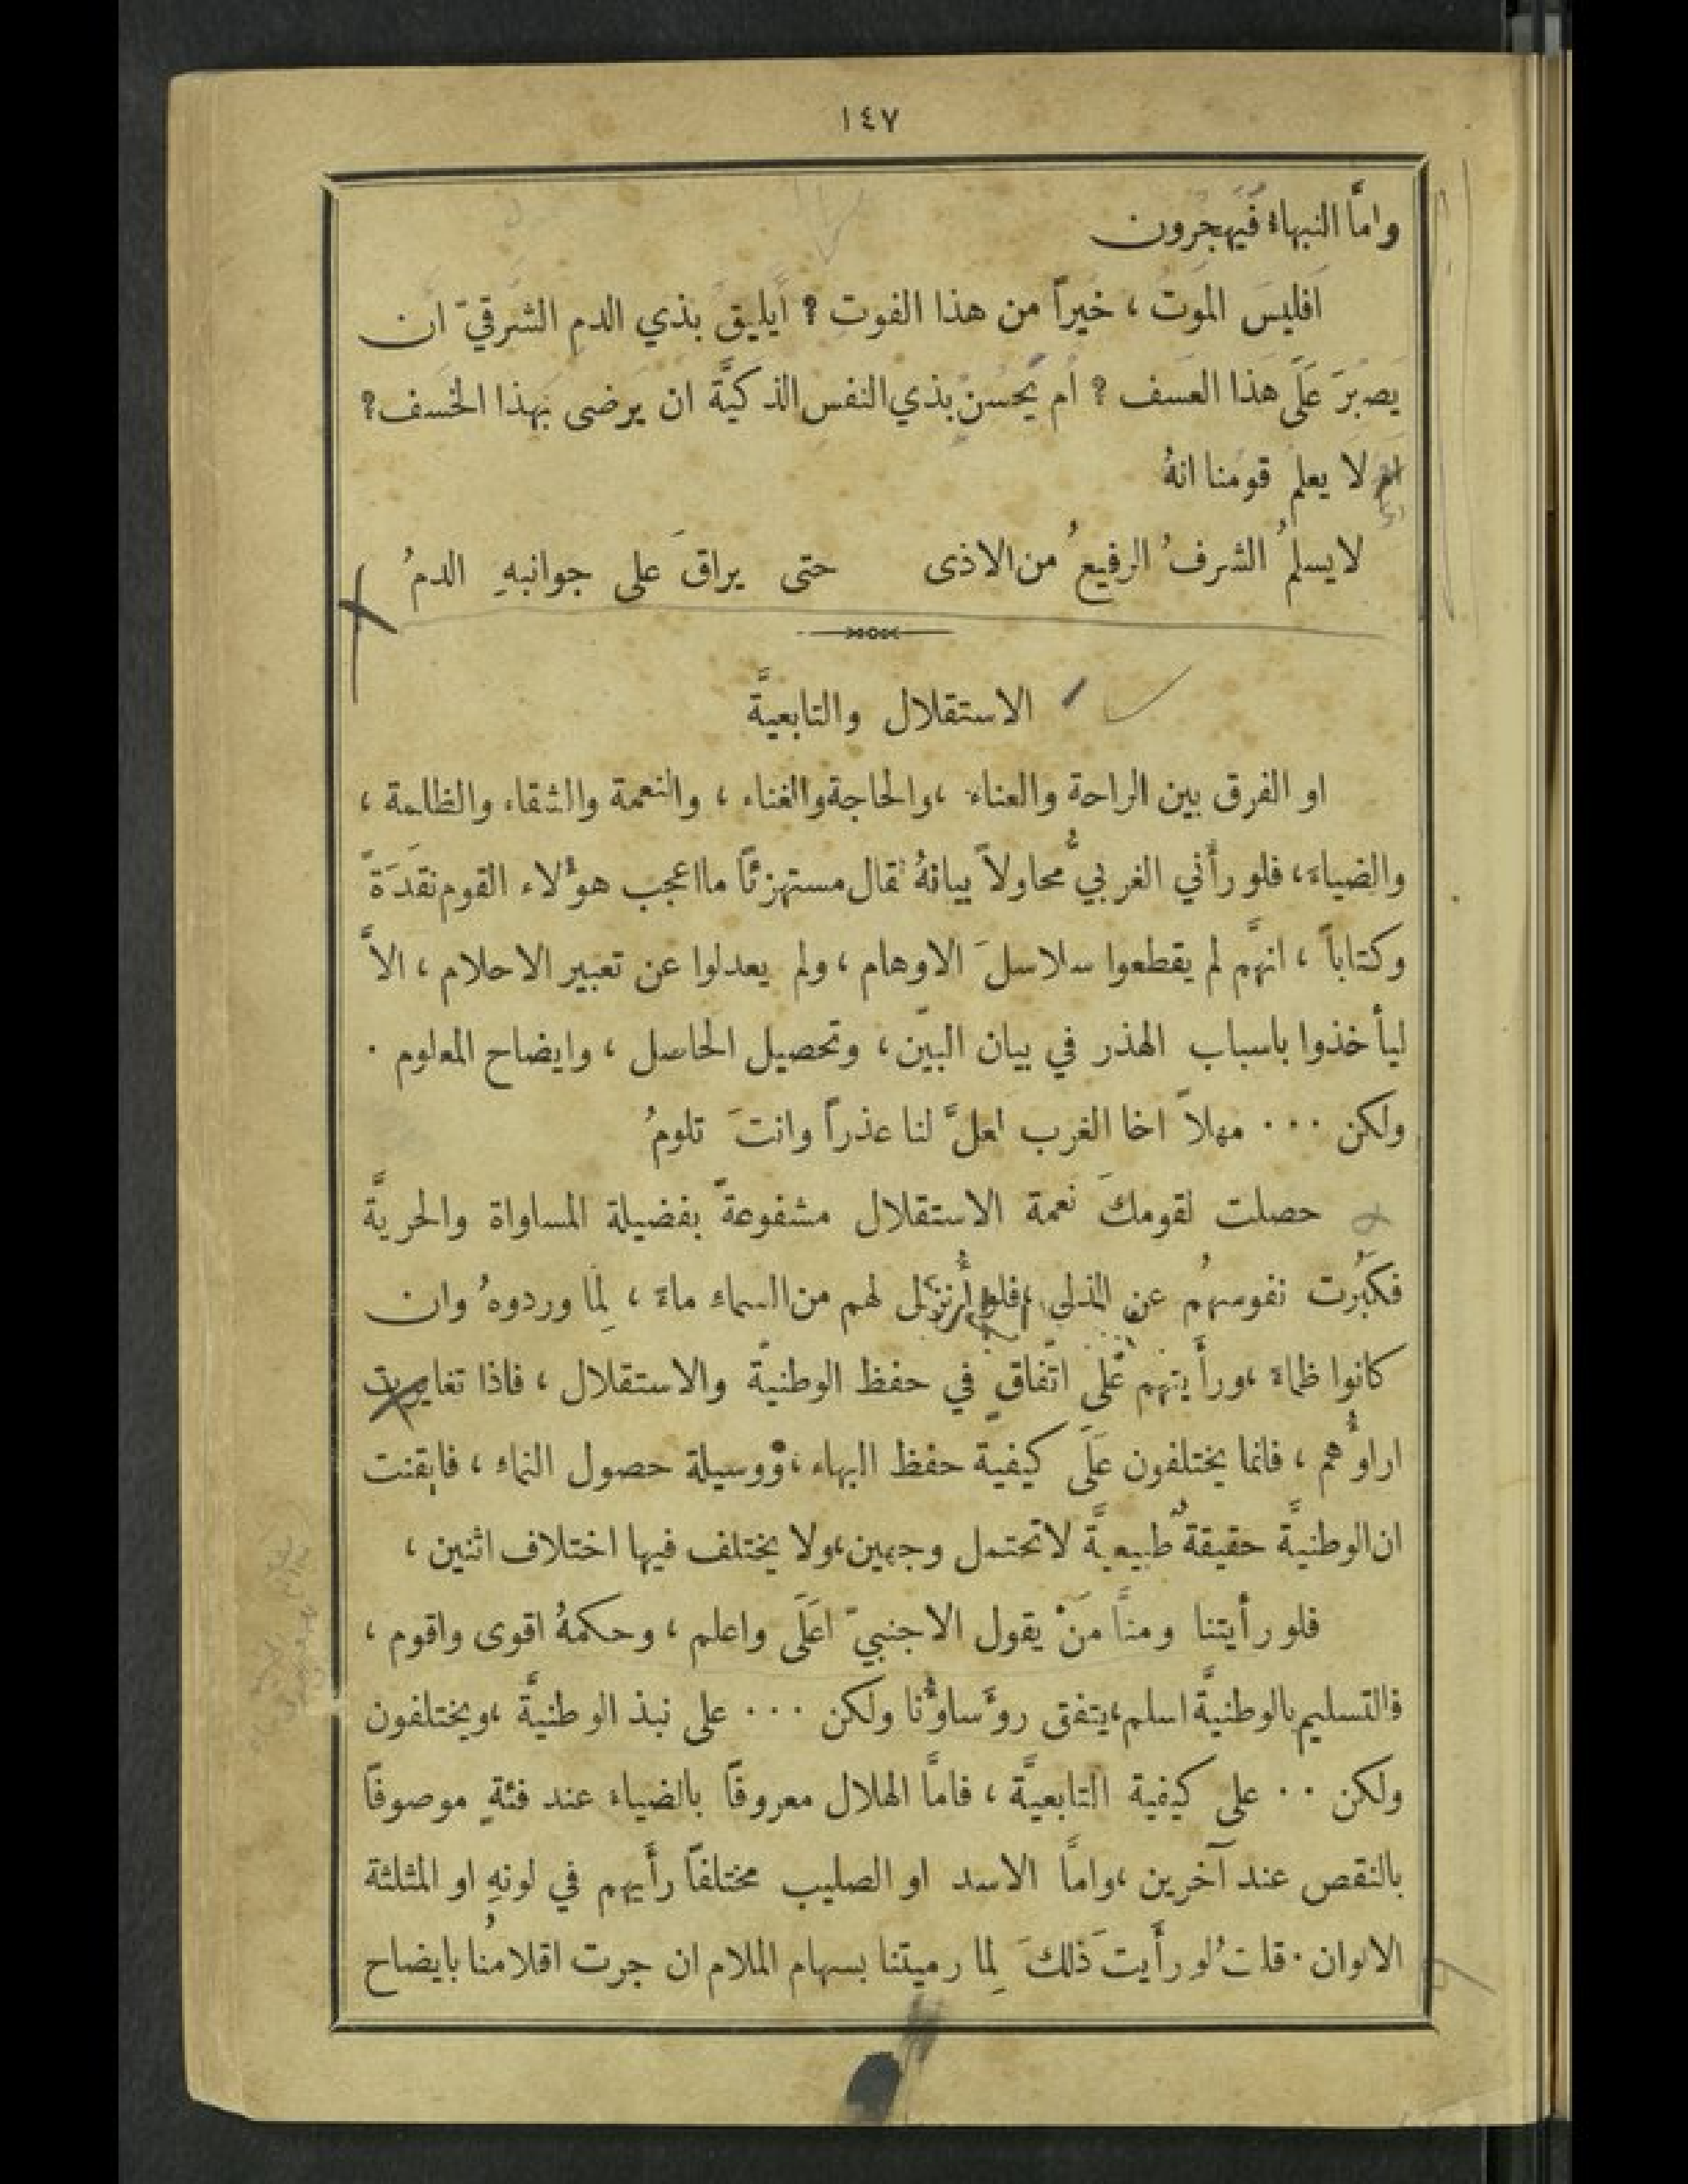 ١٤٧
وامَّا النبهاء فيُهجَرون
افليسَ الموتُ ، خيراً من هذا الفوت ؟ ايليقُ بذي الدم الشرقيّ ان
يصبرَ عَلَى هذا العسف ؟ ام يحسنُ بذي النفس الذكيَّة ان يرضى بهذا الخسف ؟
لا يعلم قومنا انهُ
لا يسلمُ الشرفُ الرفيعُ من الاذى حتى يراقَ على جوانبهِ الدمُ
الاستقلال والتابعيَّة
او الفرق بين الراحة والعناء ، والحاجة والغناء ، والنعمة والشقاء والظلمة ،
والضياء ، فلو رأني الغربيُّ محاولاً بيانهُ لقال مستهزئًا ما اعجب هؤلاء القوم نقَدَةً
وكتاباً ، انهَّم لم يقطعوا سلاسلَ الاوهام ، ولم يعدلوا عن تعبير الاحلام ، الاَّ
ليأخذوا باسباب الهذر في بيان البيّن ، وتحصيل الحاصل ، وايضاح المعلوم .
ولكن ... مهلاً اخا الغرب لعلَّ لنا عذراً وانتَ تلومُ
حصلت لقومكَ نعمة الاستقلال مشفوعةً بفضيلة المساواة والحريَّة
فكبُرت نفوسهُم عن الذل ، فلو أُنزل لهم من السماء ماء ، لِمَا وردوهُ وان
كانوا ظماء ، ورأَيتهم عَلَى اتّفاقٍ في حفظ الوطنيَّة والاستقلال ، فاذا تغايرت
اراوُّهم ، فانما يختلفون عَلَى كيفية حفظ البهاء ، ووسيلة حصول النماء ، فايقنت
ان الوطنيَّة حقيقةٌ طبيعيَّة لا تحتمل وجهين ، ولا يختلف فيها اختلاف اثنين ،
فلو رأيتنا ومنَّا مَنْ يقول الاجنبيّ اعلَى واعلم ، وحكمهُ اقوى واقوم ،
فالتسليم بالوطنيَّة اسلم ، يتفق روَّساوُّنا ولكن ... على نبذ الوطنيَّة ، ويختلفون
ولكن .. على كيفية التابعيَّة ، فامَّا الهلال معروفًا بالضياء عند فئةٍ موصوفًا
بالنقص عند آخرين ، وامَّا الاسد او الصليب مختلفًا رأَيهم في لونهِ او المثلثة
الالوان . قلتُ لو رأَيتَ ذلكَ لِما رميتنا بسهام الملام ان جرت اقلامنُا بايضاح